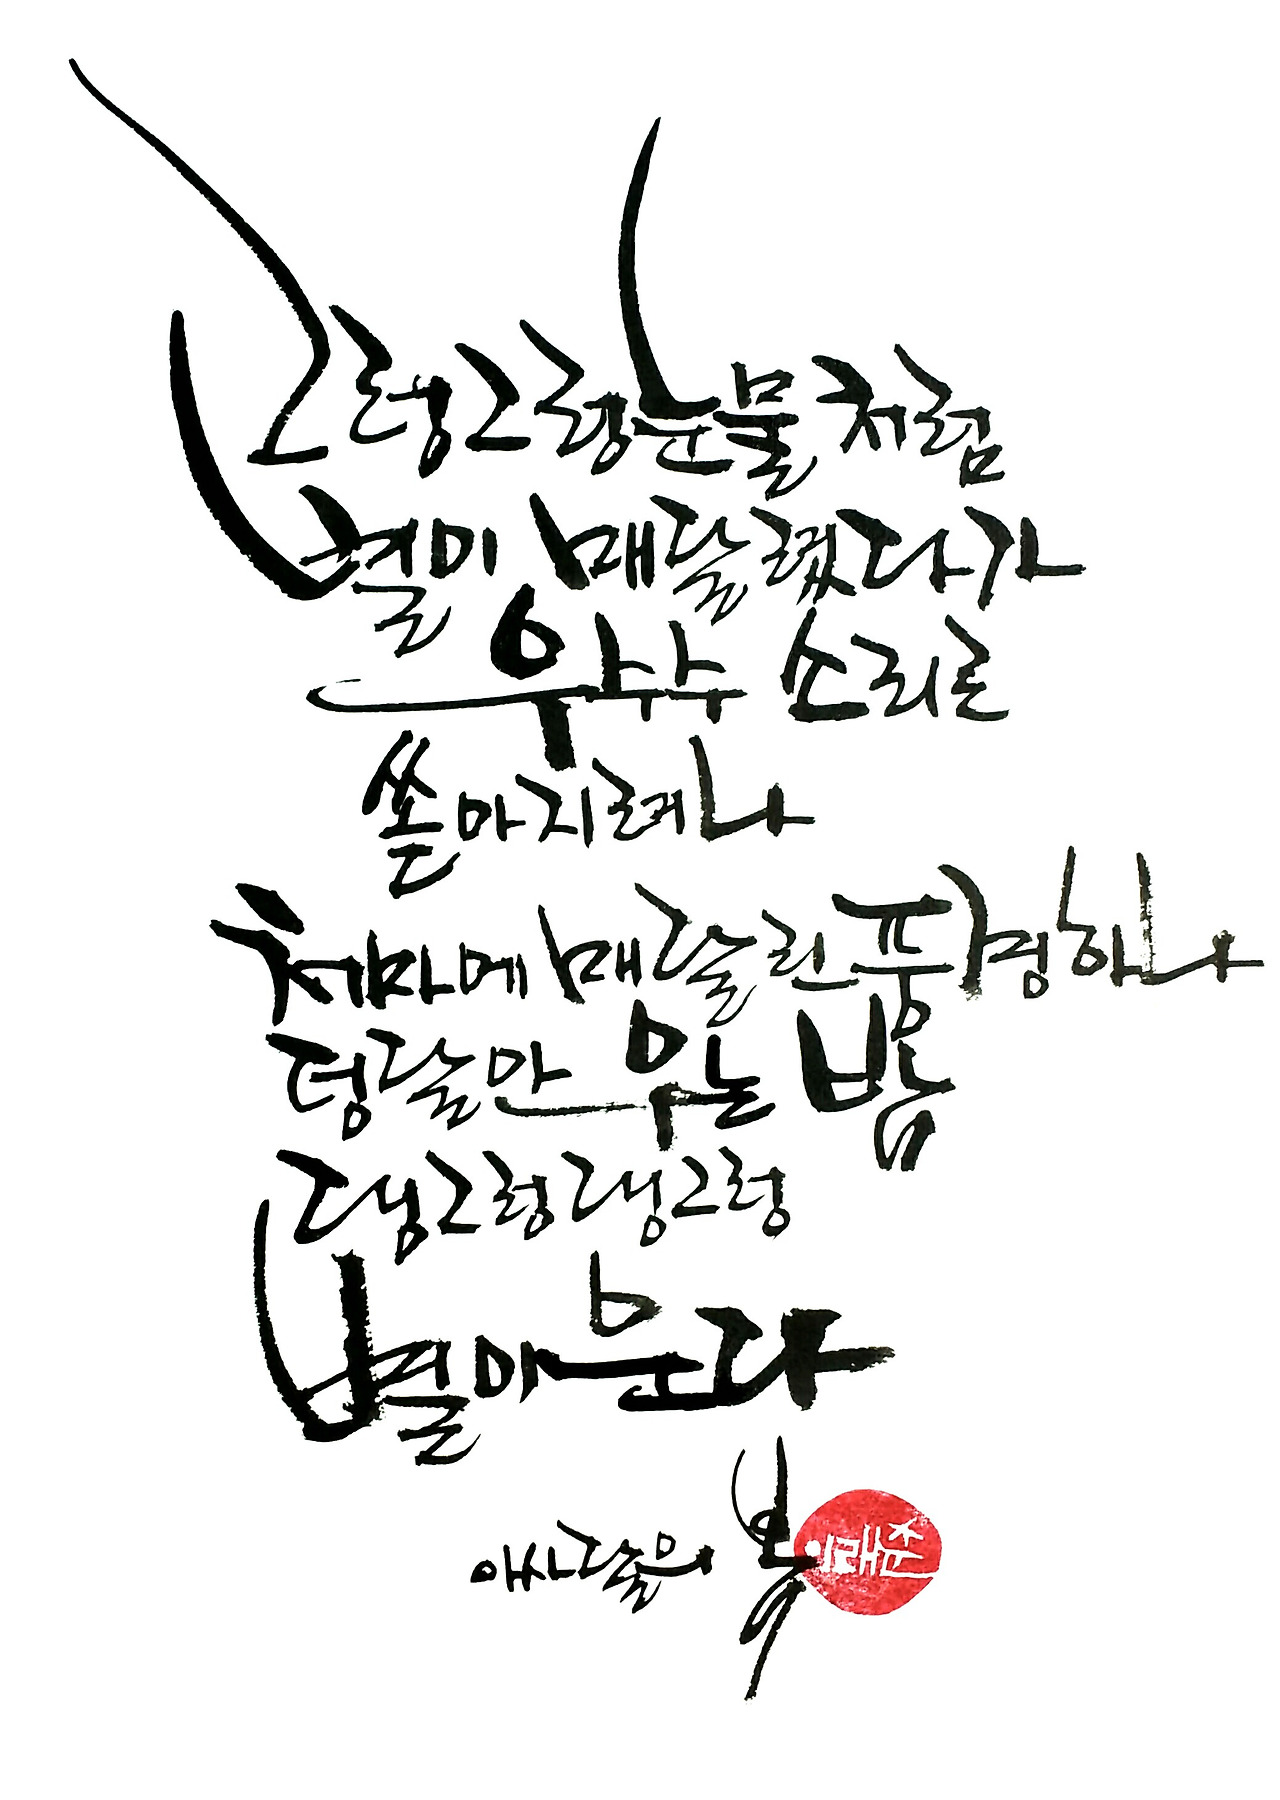 그렁그렁 눈물처럼
별이 매달렸다가
우수수 소리로
쏟아지려나
처마에 매달린 풍경 하나
덩달아 우는 밤
댕그렁 댕그렁
별이 운다
아사달의 붓